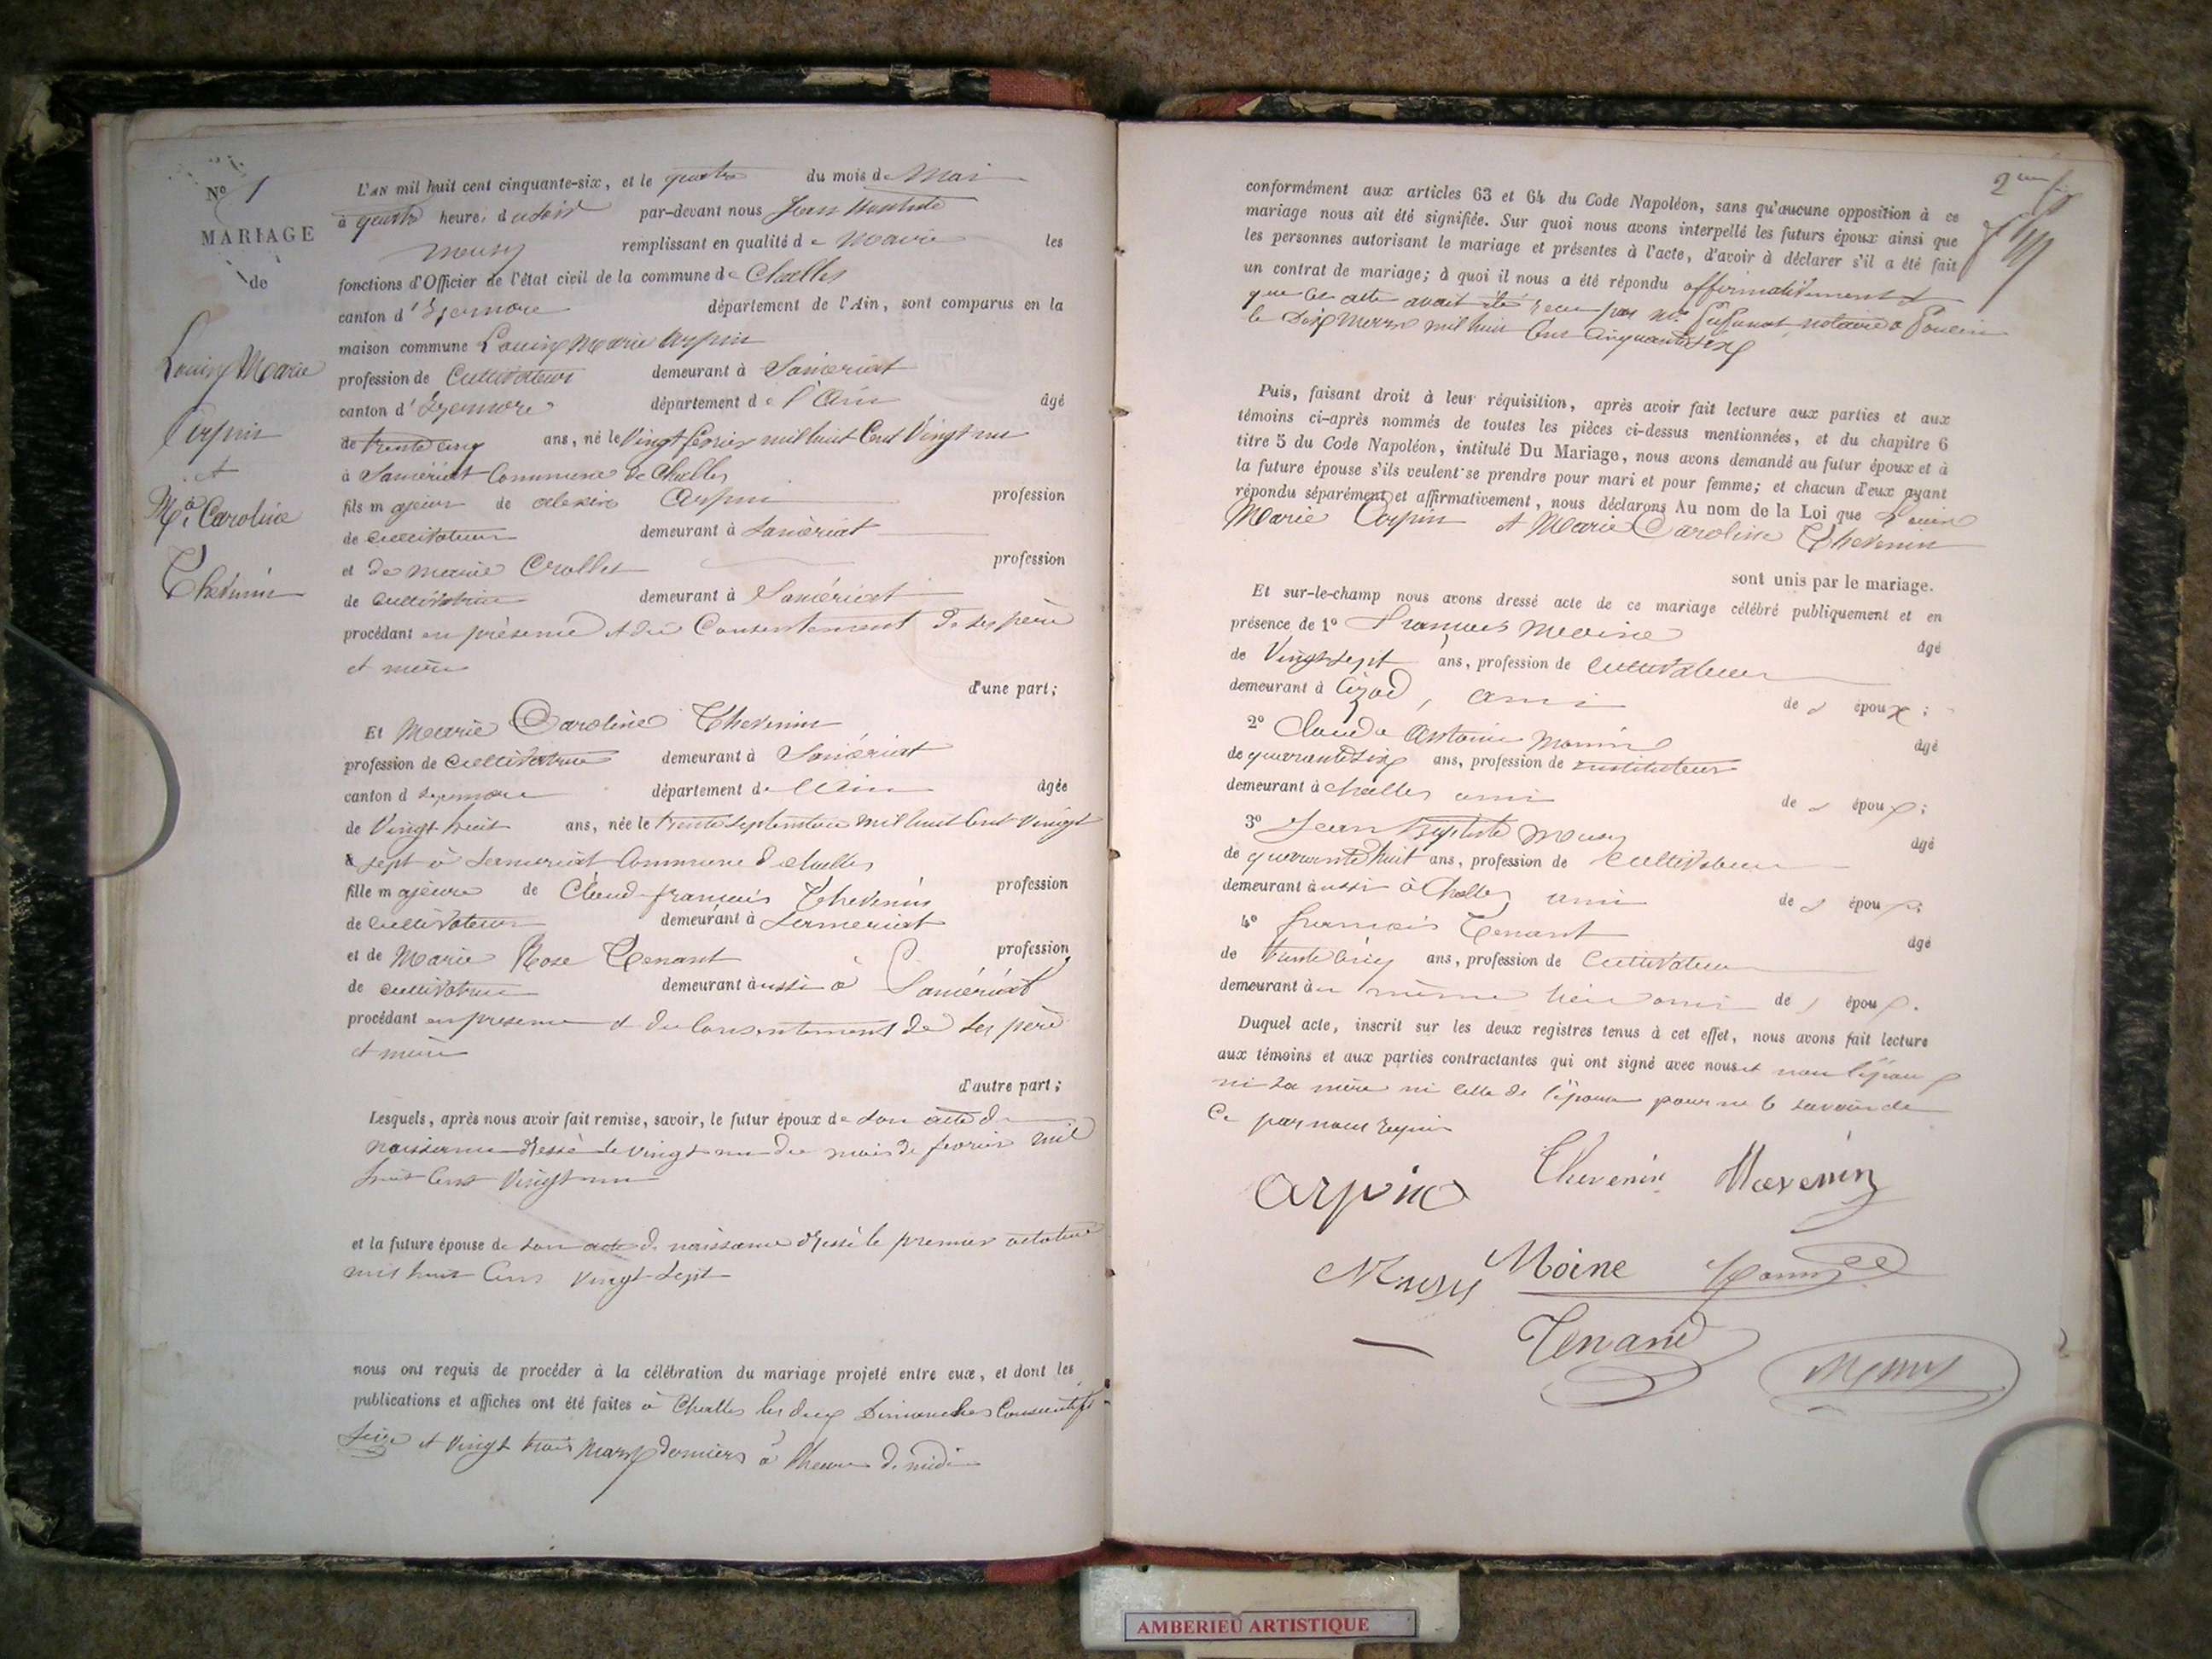 N° 1
MARIAGE
de
Louis Marie
Arpin
et
Mie Caroline
Thévenin
L'AN mil huit cent cinquante-six, et le quatre du mois de Mai
à quatre heures du soir par-devant nous Jean Baptiste
Mousy remplissant en qualité de Maire les
fonctions d'Officier de l'état civil de la commune de Challes
canton d'Izernore département de l'Ain, sont comparus en la
maison commune Louis Marie Arpin
profession de Cultivateur demeurant à Samériat
canton d'Izernore département de l'Ain âgé
de trente cinq ans, né le Vingt février mil huit Cent Vingt un
à Samériat Commune de Challes
fils majeur de alexis Arpin profession
de cultivateur demeurant à Samériat
et de marie Crollet profession
de cultivatrice demeurant à Samériat
procédant en présence et du Consentement de ses père
et mère
d'une part;
Et Marie Caroline Thevenin
profession de cultivatrice demeurant à Samériat
canton d izernore département de l'Ain âgée
de Vingt huit ans, née le trente septembre mil huit Cent Vingt
sept à Sameriat Commune de Challes
fille majeure de Claud-françois Thevenin profession
de Cultivateur demeurant à Sameriat
et de Marie Rose Tenant profession
de cultivatrice demeurant aussi à Samériat
procédant en presence et du Consentement de ses père
et mère
d'autre part;
Lesquels, après nous avoir fait remise, savoir, le futur époux de son acte de
naissance dressé le vingt un du mois de fevrier mil
huit Cent Vingt un
et la future épouse de son acte de naissance dressé le premier octobre
mil huit Cent vingt sept
nous ont requis de procéder à la célébration du mariage projeté entre eux, et dont les
publications et affiches ont été faites à Challes les deux Dimanches Consécutifs
seize et vingt trois Mars derniers à l'heure de midi
2me f
conformément aux articles 63 et 64 du Code Napoléon, sans qu'aucune opposition à ce
mariage nous ait été signifiée. Sur quoi nous avons interpellé les futurs époux ainsi que
les personnes autorisant le mariage et présentes à l'acte, d'avoir à déclarer s'il a été fait
un contrat de mariage; à quoi il nous a été répondu affirmativement et
que cet acte avait été recu par Me notaire à Poncin
le Dix Mars mil huit Cent Cinquante six
Puis, faisant droit à leur réquisition, après avoir fait lecture aux parties et aux
témoins ci-après nommés de toutes les pièces ci-dessus mentionnées, et du chapitre 6
titre 5 du Code Napoléon, intitulé Du Mariage, nous avons demandé au futur époux et à
la future épouse s'ils veulent se prendre pour mari et pour femme; et chacun d'eux ayant
répondu séparément et affirmativement, nous déclarons Au nom de la Loi que Louis
Marie Arpin et Marie Caroline Thevenin
sont unis par le mariage.
Et sur-le-champ nous avons dressé acte de ce mariage célébré publiquement et en
présence de 1° François Moine âgé
de Vingt sept ans, profession de Cultivateur
demeurant à Cizod, ami des époux;
2° Claude Antoine Monin âgé
de quarante six ans, profession de instituteur
demeurant à challes ami des époux;
3° Jean Baptiste Mousy âgé
de quarante huit ans, profession de Cultivateur
demeurant aussi à Challes ami des époux;
4° françois Tenant âgé
de trente cinq ans, profession de Cultivateur
demeurant au même lieu ami des époux.
Duquel acte, inscrit sur les deux registres tenus à cet effet, nous avons fait lecture
aux témoins et aux parties contractantes qui ont signé avec nous et non l'époux
ni sa mère ni celle de l'épouse pour ne le savoir de
ce par nous requis
Arpin Thevenin Thevenin
Mousy Moine Monin
Tenand
Mousy
AMBERIEU ARTISTIQUE